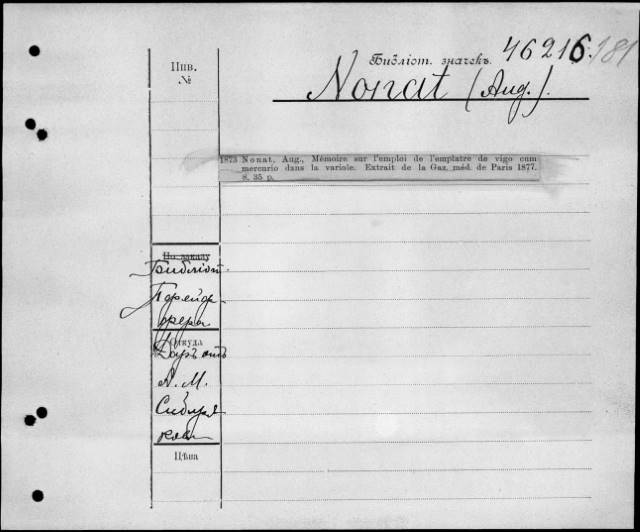 Инв.
№
Библіот. значекъ.
46216.
181
Nonat (Aug.).
1873 Nonat, Aug., Mémoire sur l'emploi de l'emplatre de vigo cum
mercurio dans la variole. Extrait de la Gaz. méd. de Paris 1877.
8. 35 p.
По заказу
Библіот.
Пфейф-
фера
Откуда
Даръ отъ
А. М.
Сибиря-
кова
Цѣна